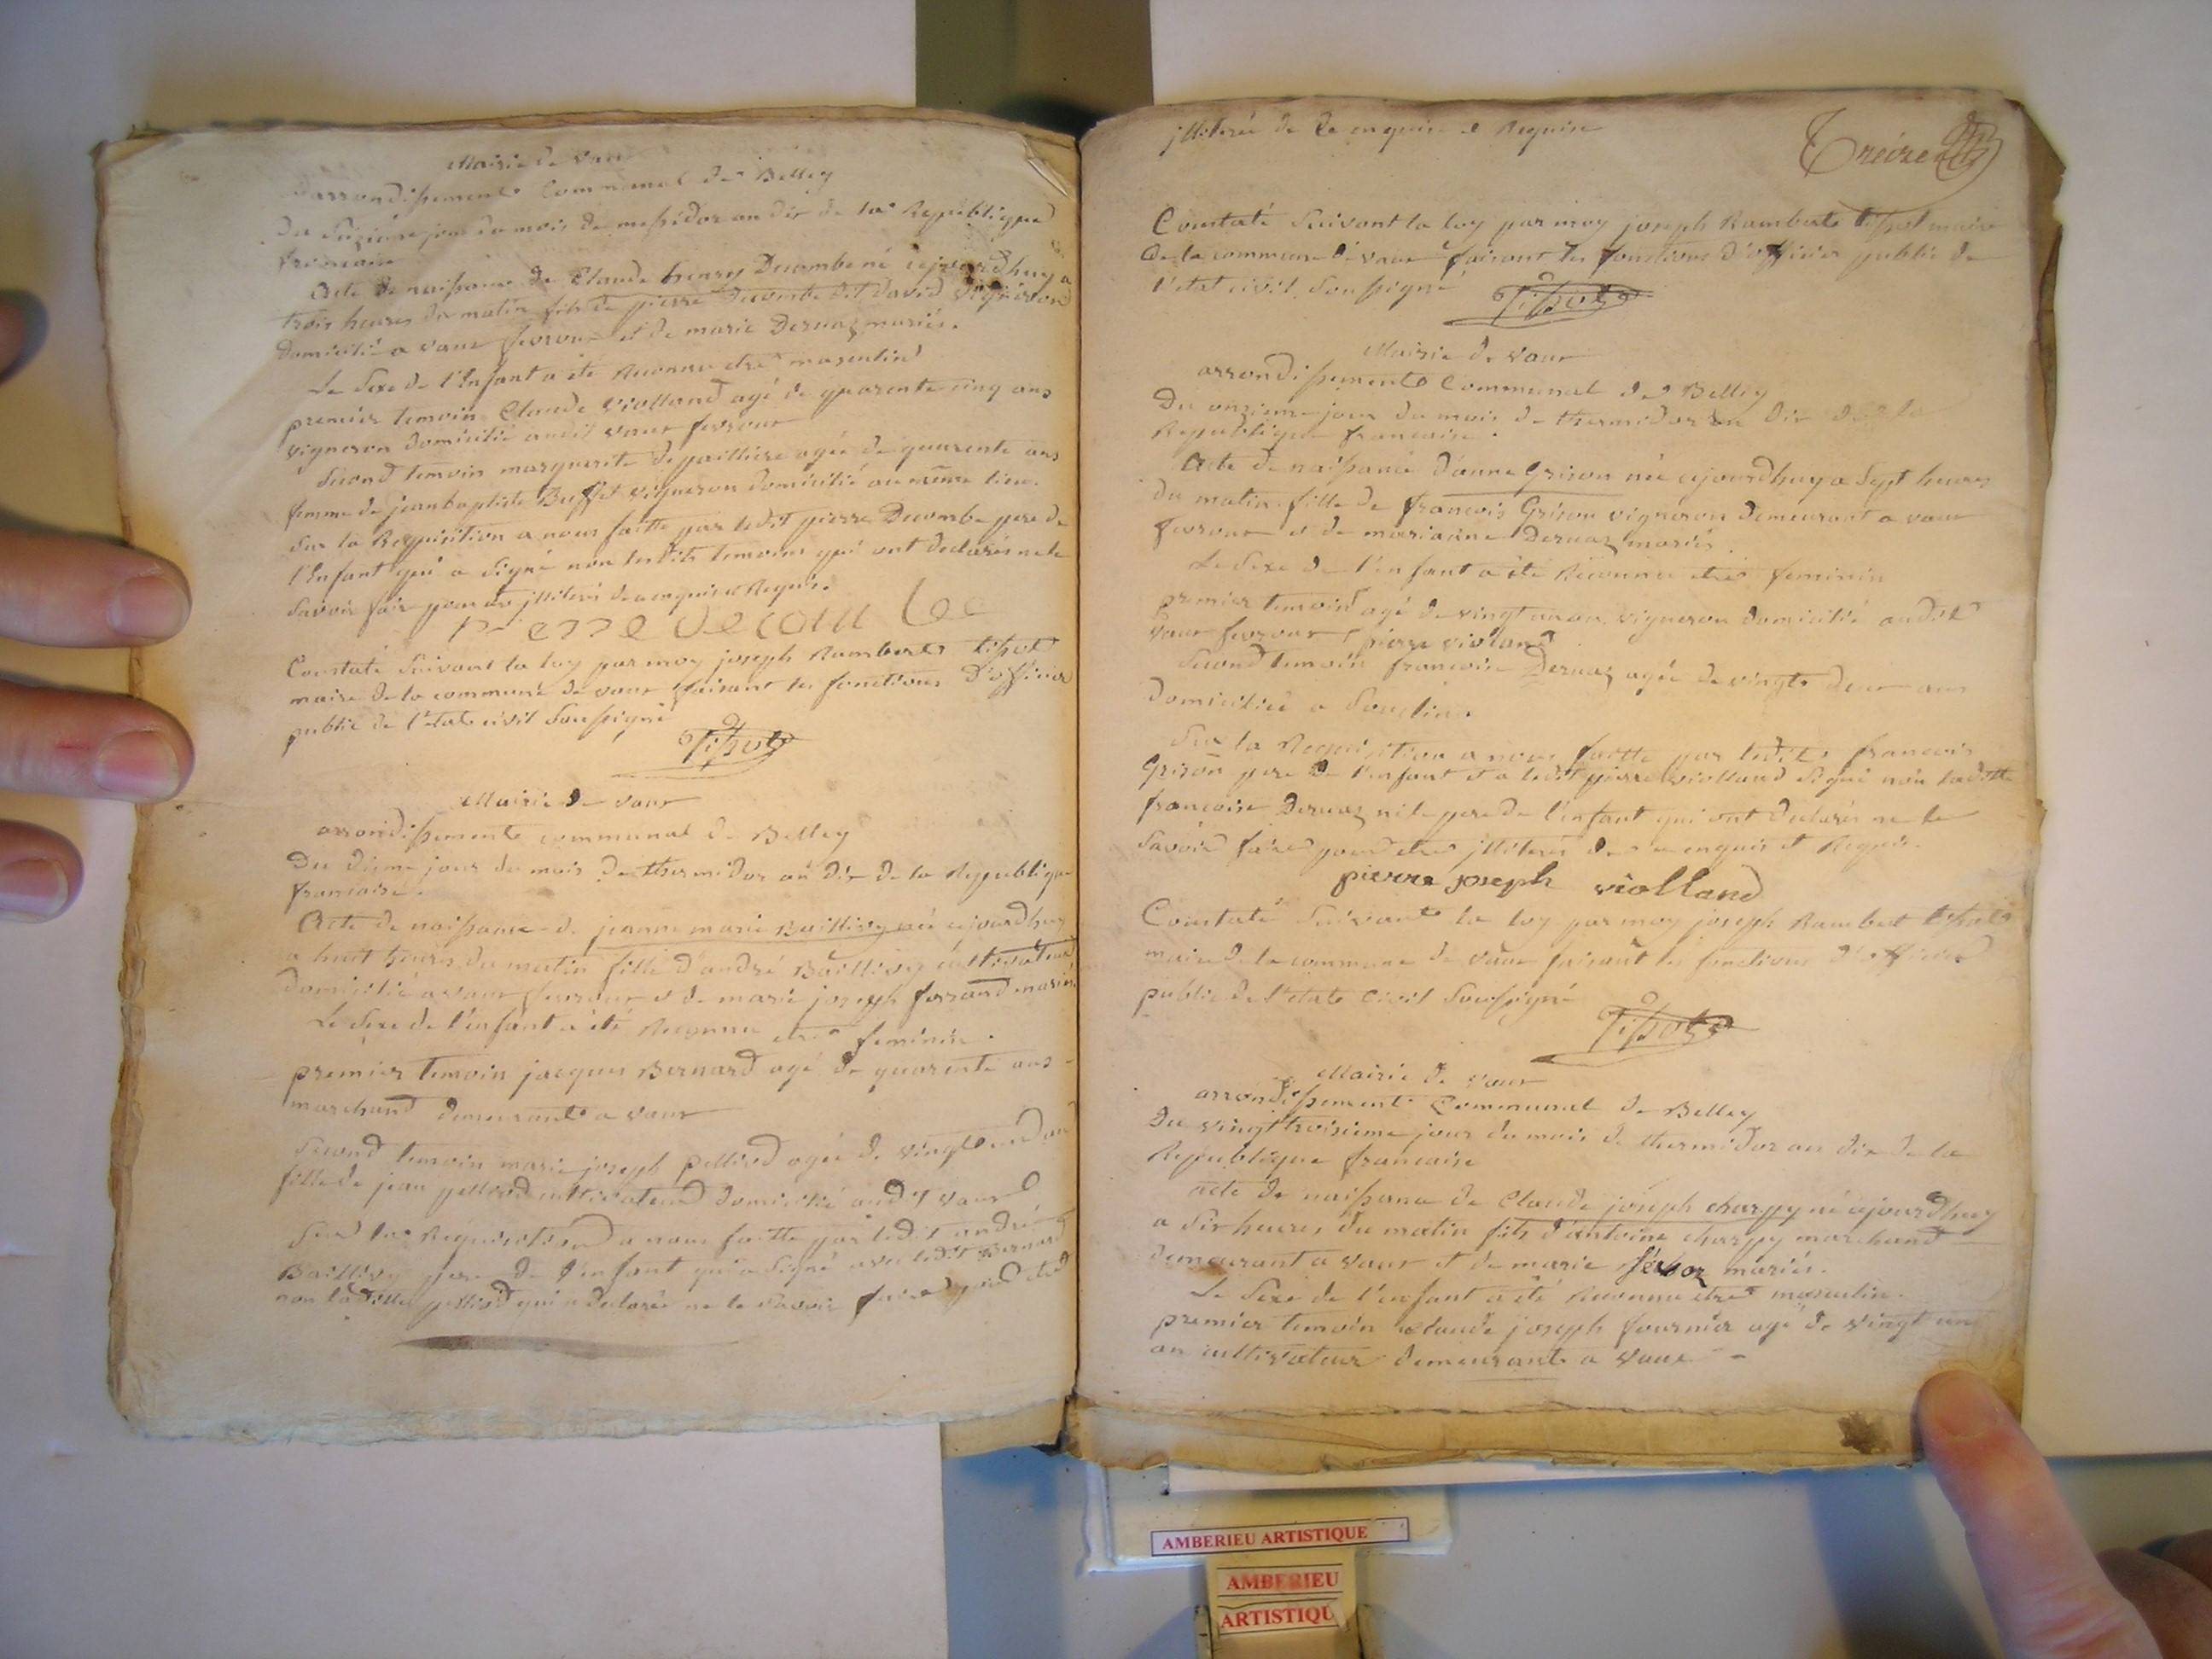 Mairie de Vaux
arrondissement Communal de Belley
Du seizième jour du mois de messidor an dix de la Republique
francaise
Acte de naissance de Claude henry Decombe né cejourdhuy a
trois heures du matin fils de pierre Decombe dit david vigneron
domicilié a vaux fevroux et de marie Dervaz mariés.
Le Sexe de l'Enfant a été Reconnu etre masculin
premier temoin Claude Violland agé de quarente cinq ans
vigneron domicilié audit vaux fevroux
Second temoin marguerite depailliere agée de quarente ans
femme de jean baptiste Buffet vigneron domicilié au même lieu.
Sur la Requisition a nous faitte par ledit pierre Decombe pere de
l'Enfant qui a Signé non lesdits temoins qui ont declarés ne le
Savoir fair pour etre illiterés de ce enquis et Requis.
pierre decombe
Constaté Suivant la loy par moy joseph Rambert tissot
maire de la commune de vaux faisant les fonctions d'officier
public de l'etat civil Soussigné
Tissot
Mairie de vaux
arrondissement communal de Belley
Du dixme jour du mois de thermidor an dix de la Republique
francaise.
Acte de naissance de jeanne marie Baillivy née cejourdhuy
a huit heures du matin fille d'andré Baillivy cultivateur
domicilié a vaux fevroux et de marie joseph ferrand mariés
Le Sexe de l'enfant a été Reconnu etre feminin.
premier temoin jacques Bernard agé de quarente ans
marchand demeurant a vaux
Second temoin marie joseph pelliod agée de vingt un an
fille de jean pelliod cultivateur domicilié audit vaux
Sur la Requisition a nous faitte par ledit andré
Baillivy pere de l'enfant qui a Signé avec ledit Bernard
non la ditte pelliod qui a declarée ne le Savoir faire pour etre
illiterée de ce enquise et Requise
Constaté Suivant la loy par moy joseph Rambert tissot maire
de la commune de vaux faisant les fonctions d'officier public de
l'etat civil Soussigné
Tissot
Mairie de vaux
arrondissement Communal de Belley
Du onzieme jour du mois de thermidor an dix de la
Republique francaise.
Acte de naissance d'anne Grison née cejourdhuy a Sept heures
du matin fille de francois Grison vigneron demeurant a vaux
fevroux et de marianne Dervaz mariés.
Le Sexe de l'enfant a été Reconnu etre feminin
premier temoin agé de vingt un an vigneron domicilié audit
vaux fevroux pierre violland
Second temoin francoise Dervaz agée de vingt deux ans
domiciliée a
Sur la Requisition a nous faitte par ledit francois
Grison pere de l'enfant et a ledit pierre violland Signé non laditte
francoise Dervaz ni le pere de l'enfant qui ont declarés ne le
Savoir faire pour etre illiterés de ce enquis et Requis.
pierre joseph violland
Constaté Suivant la loy par moy joseph Rambert tissot
maire de la commune de vaux faisant les fonctions d'officier
public de l'etat civil Soussigné
Tissot
Mairie de vaux
arrondissement Communal de Belley
Du vingt troisieme jour du mois de thermidor an dix de la
Republique francaise
acte de naissance de Claude joseph charpy né cejourdhuy
a Six heures du matin fils d'antoine charpy marchand
demeurant a vaux et de marie mariés.
Le Sexe de l'enfant a été Reconnu etre masculin.
premier temoin claude joseph fournier agé de vingt un
an cultivateur demeurant a vaux
AMBERIEU ARTISTIQUE
AMBERIEU
ARTISTIQU